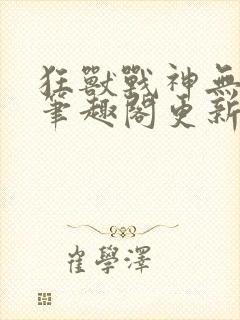 狂獸戰神無
筆趣閣更新
崔學澤